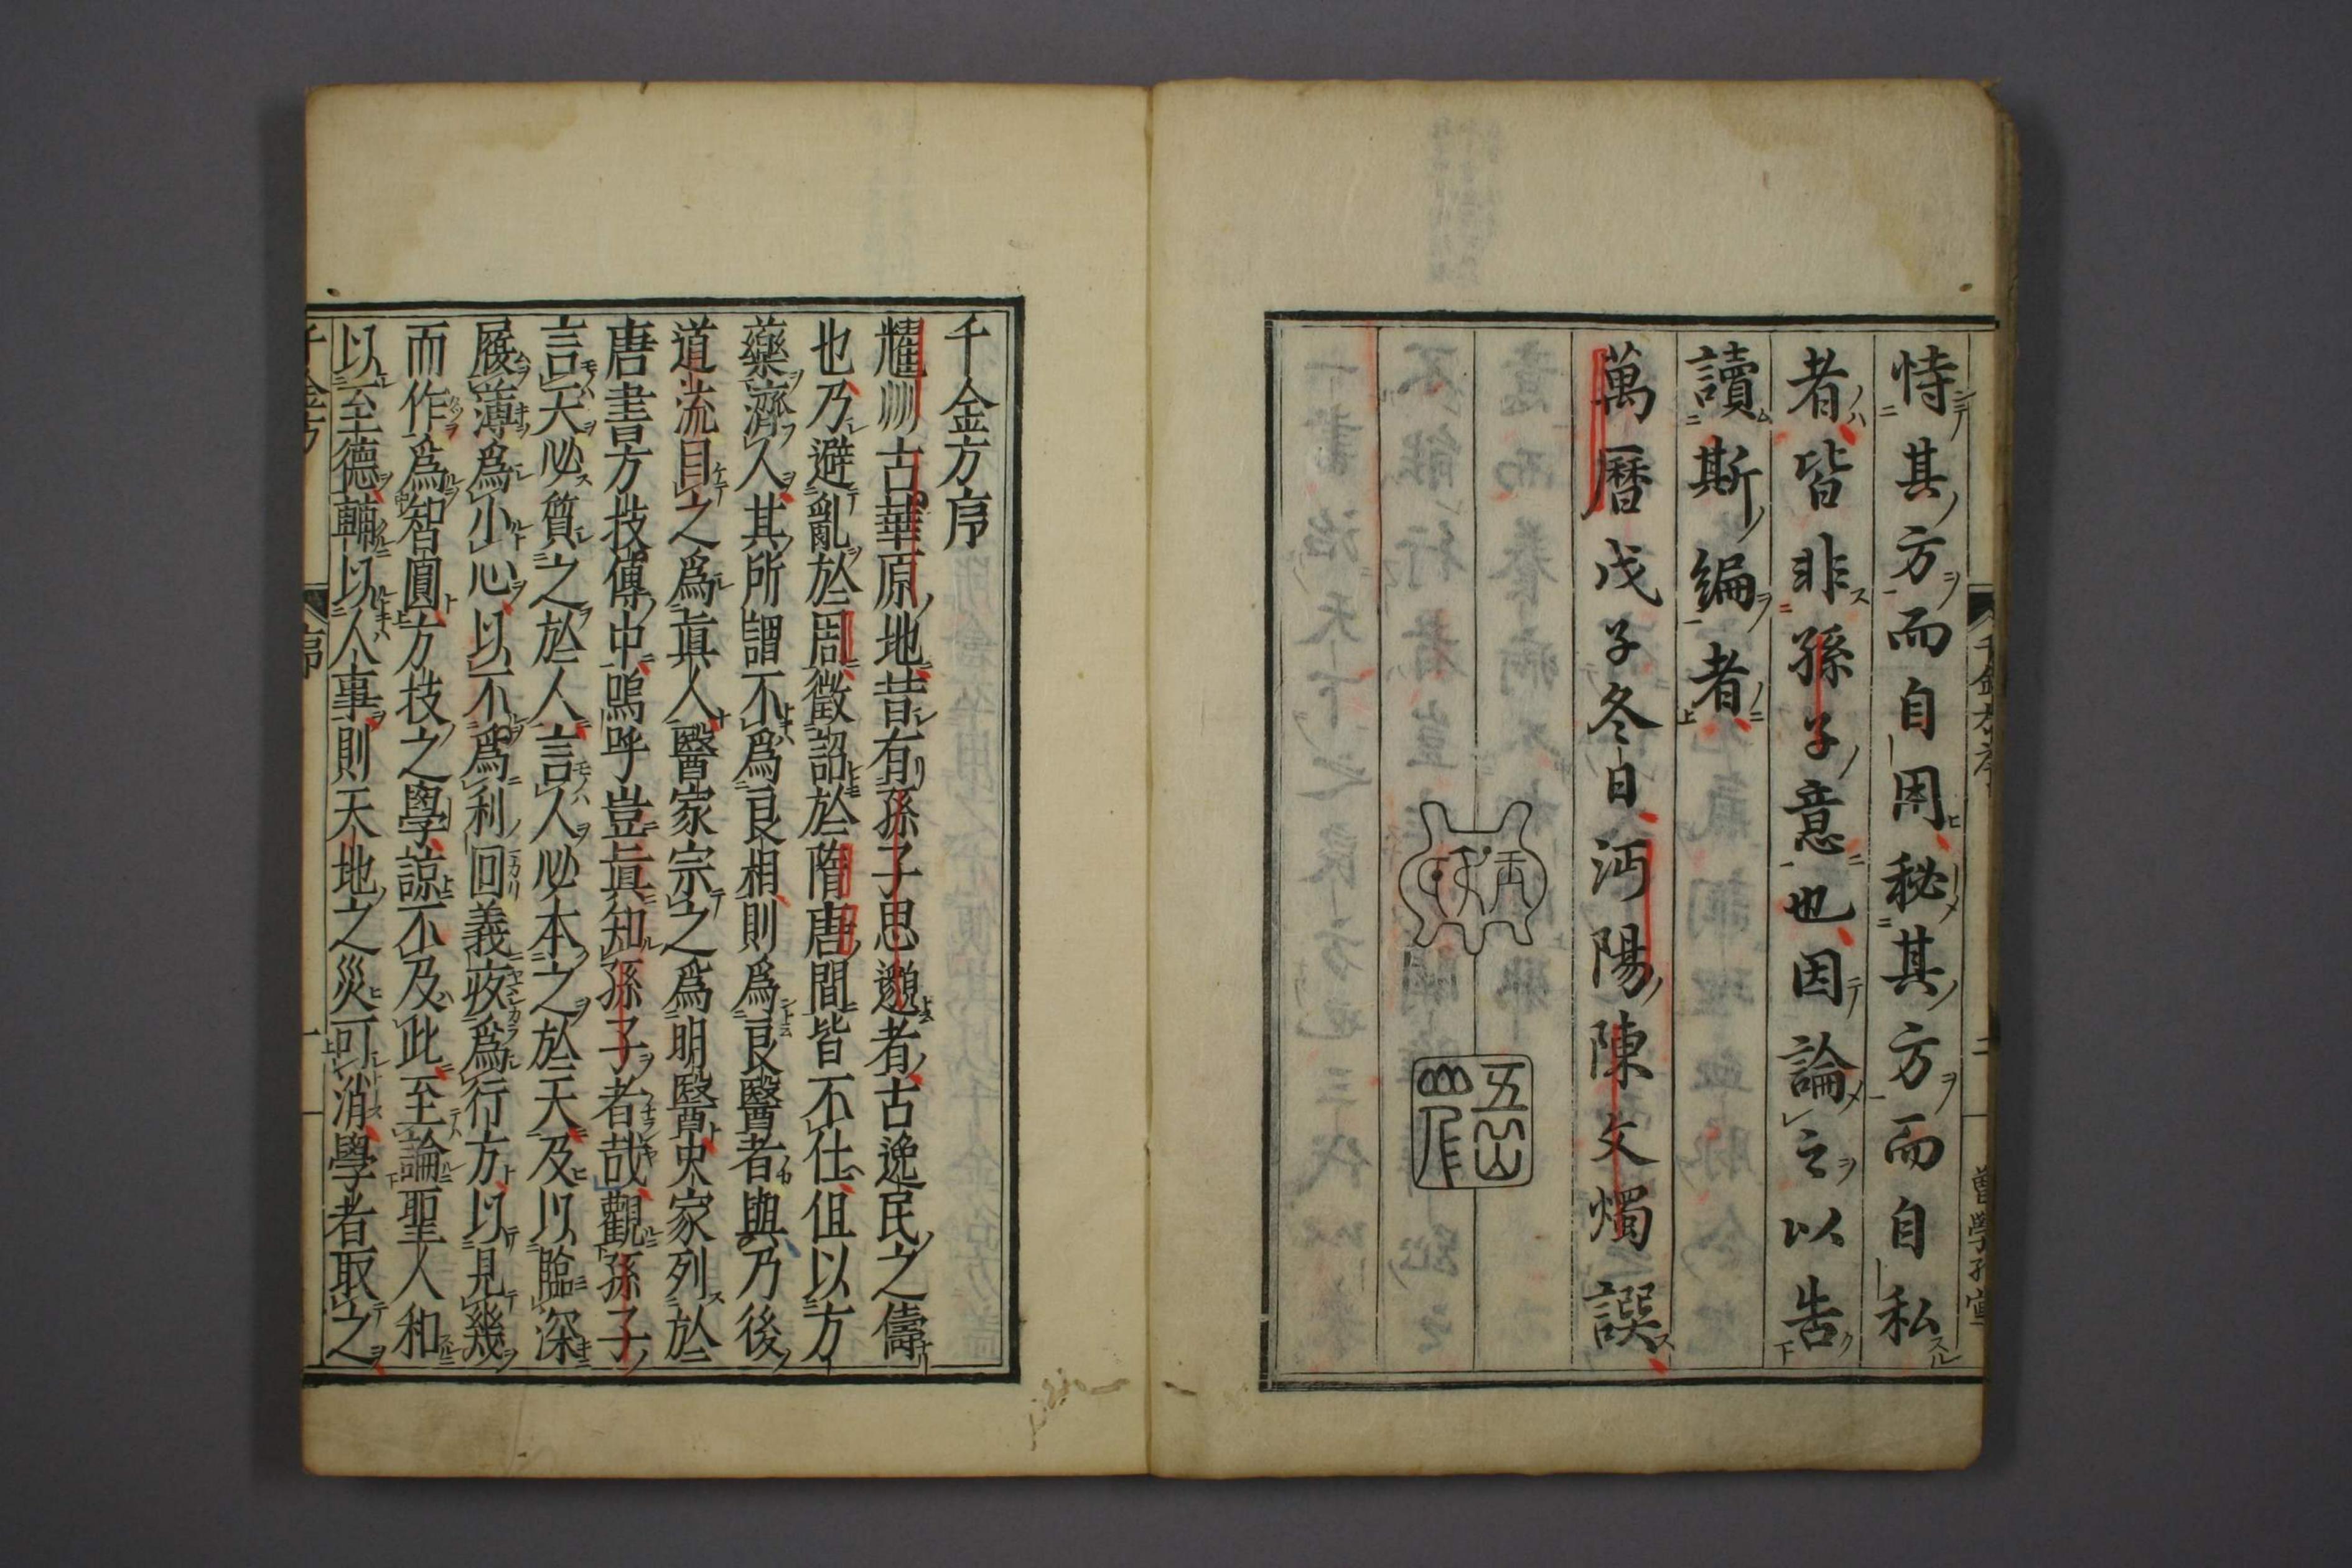 恃其方而自用秘其方而自私
者皆非孫子意也因論之以告
讀斯編者
萬曆戊子冬日沔陽陳文燭譔
五山
千金方序
耀州古華原地昔有孫子思邈者古逸民之儔
也乃避亂於周徵詔於隋唐間皆不仕但以方
藥濟人其所謂不爲良相則爲良醫者與乃後
道流目之爲眞人醫家宗之爲明醫史家列於
唐書方技傳中嗚呼豈眞知孫子者哉觀孫子
言天必質之於人言人必本之於天及以臨深
履薄爲小心以不爲利回義疚爲行方以見幾
而作爲智圓方技之學諒不及此至論聖人和
以至德輔以人事則天地之災可消學者取之
千金方 序 一